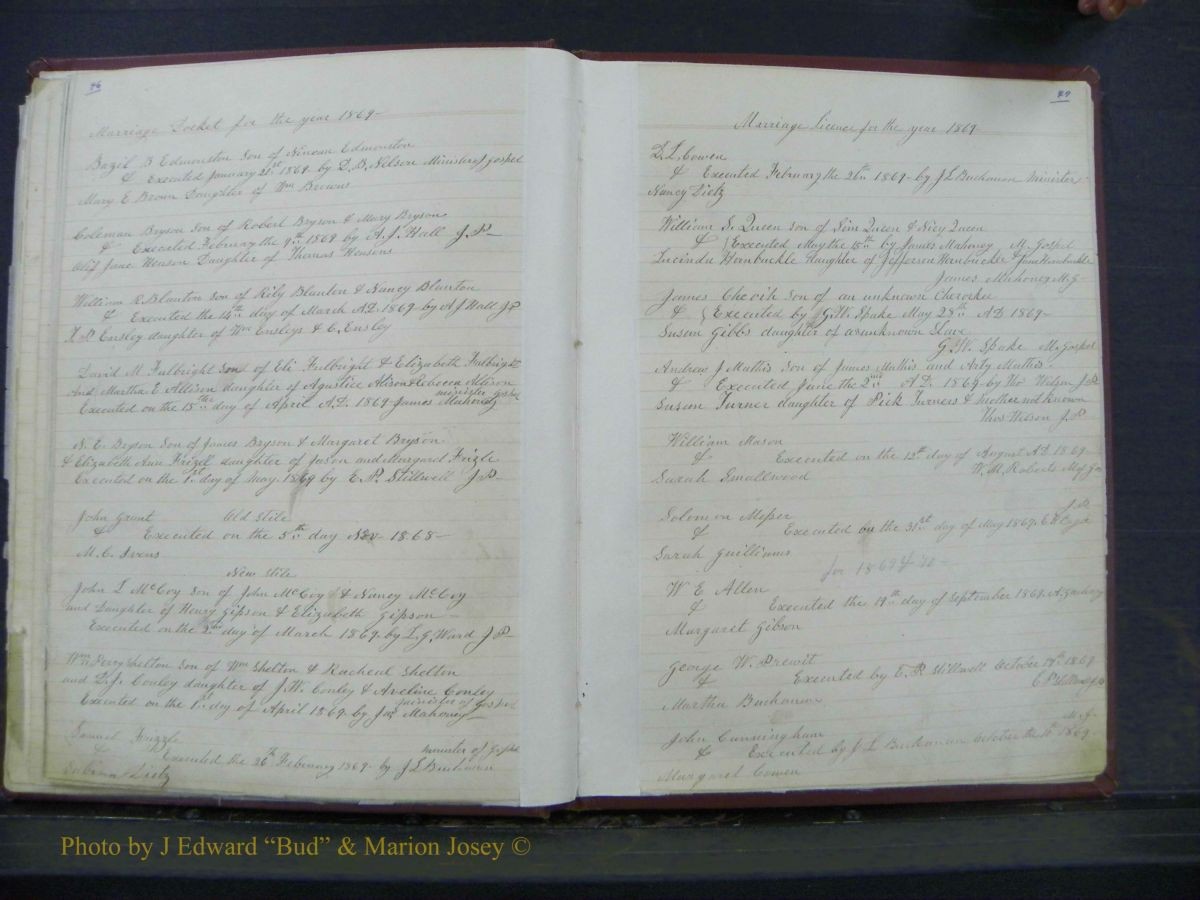 46
Marriage Docket for the year 1869
Bazil B Edmonston Son of Ninean Edmonston
& Executed January 21st 1869 by D. B. Nelson Minister gospel
Mary E Brown Daughter of Wm Browns
Coleman Bryson Son of Robert Bryson & Mary Bryson
& Executed February the 9th 1869 by A. J. Hall J. P
Jane Henson Daughter of Thomas Hensons
William R Blanton Son of Rily Blanton & Nancy Blanton
& Executed the 14th day of March A.D. 1869 by A J Hall J P
Ensley daughter of Wm Ensleys & C. Ensley
David M Fulbright Son of Eli Fulbright & Elizabeth Fulbright
and Martha E Allison daughter of Agustice Alison & Rebecca Allison
minister gospel
Executed on the 15th day of April A.D. 1869 James Mahoney
N. E. Bryson Son of James Bryson & Margaret Bryson
& Elizabeth Ann Frizel daughter of Jason and Margard Frizle
Executed on the 1st day of May 1869 by E. P. Stillwell J P
John Grunt Old Stile
& Executed on the 5th day Nov 1868
M. C. Ivens
New Stile
John L McCoy Son of John McCoy & Nancy McCoy
and Daughter of Henry Gipson & Elizabeth Gipson
Executed on the 2nd day of March 1869 by L. G. Ward J P
Wm Perry Shelton Son of Wm Shelton & Racheul Shelton
and L. J. Conley daughter of J. W. Conley & Aveline Conley
minister of Gospel
Executed on the 1st day of April 1869 by Jas Mahoney
Samuel
minister of Gospel
& Executed the 26th February 1869 by J L Buchanan
Dietz
47
Marriage Licence for the year 1869
D. L. Cowen
& Executed February the 26th 1869 by J L Buchanan minister
Nancy Dietz
William S. Queen son of Sim Queen & Nicy Queen
& Executed May the 15th by James Mahoney M. Gospel
Lucinda Hornbuckle daughter of Jefferson Hornbuckle & Jane Hornbuckle
James Mahoney M. G
James Cheoih Son of an unknown Cherokee
& Executed by G. W. Spake May 28th A D 1869
Susan Gibbs daughter of an unknown Slave
G. W. Spake M. Gospel
Andrew J Mathis Son of James Mathis and Arty Mathis
& Executed June the 2nd A.D. 1869 by Thos Wilson J. P.
Susan Turner daughter of Pick Turners & Mother not known
Thos Wilson J. P
William Mason
& Executed on the 12th day of August A D 1869
Sarah Smallwood W. M. Roberts
Solomon Moser J. P
& Executed on the 31st day of May 1869.
Sarah Guilliams
for 1869
W E Allen
& Executed the 19th day of September 1869 A. Zachary
Margaret Gibson
George W. Prewit
& Executed by E. P. Stillwell October 14th 1869
Martha Buchanan
John Cunningham M. G.
& Executed by J. L Buchanan October the 1869
Margaret Cowen
Photo by J Edward “Bud” & Marion Josey ©